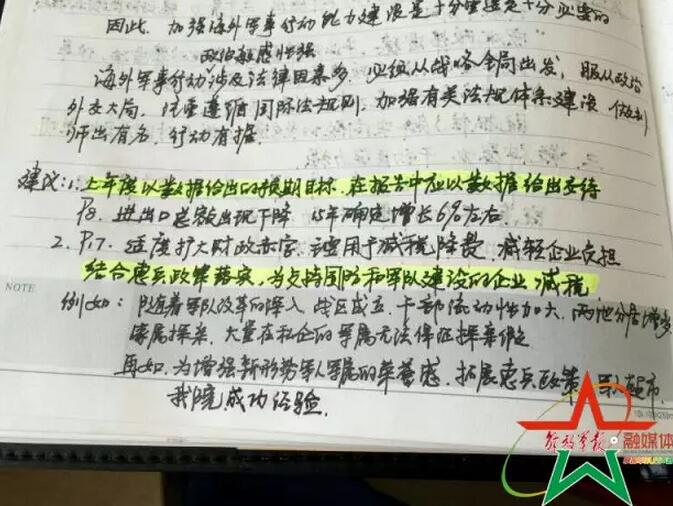 因此，加强海外军事行动能力建设是十分重要是十分必要的
政治敏感性强
海外军事行动涉及法律因素多，必须从战略全局出发，服从政治
外交大局，注重遵循国际法规则，加强有关法规体系建设，做到
师出有名，行动有据.
建议：1.上年度以数据给出的预期目标，在报告中应以数据给出交待
P8. 进出口总额出现下降 15年确定增长6%左右
2. P17. 适度扩大财政赤字，主要用于减税降费，减轻企业负担
结合惠兵政策落实，为支持国防和军队建设的企业减税
NOTE
例如：随着军队改革的深入，战区成立，干部流动性加大，两地分居增多
家属探亲，大量在私企的军属无法保证探亲假
再如，为增强新形势军人军属的荣誉感，拓展惠兵政策 军人超市.
我院成功经验.
解放军报 融媒体